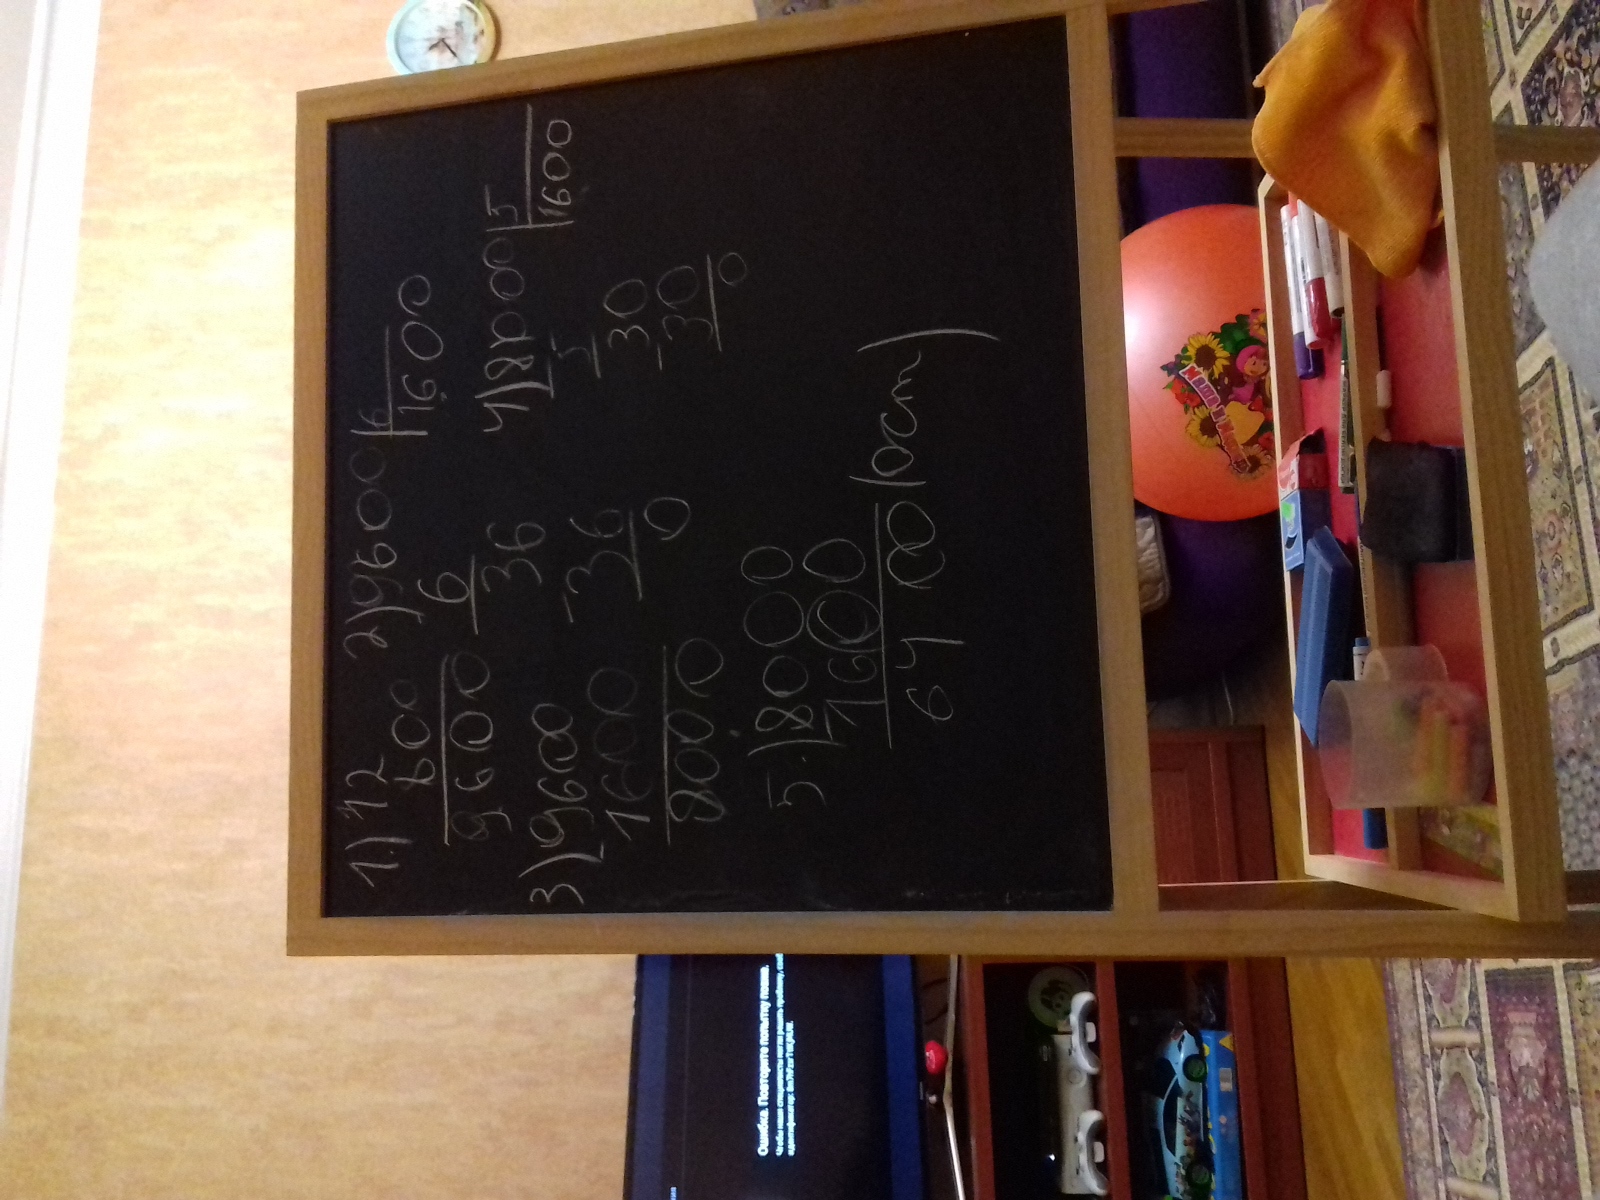 1.) 12
800
9600
2) 9600 6
1600
6
36
-36
0
3) 9600
-1600
8000
4) 8000 5
1600
5
30
-30
0
5.) 8000
1600
6400 (ост)
Ошибка. Повторите попытку позже.
Маша и Медведь